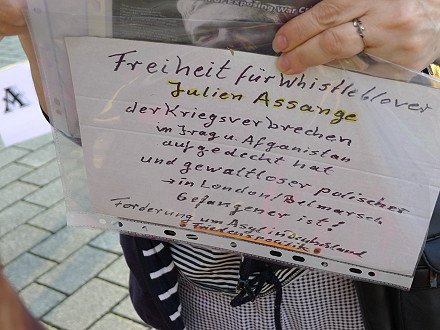 Exposing War Cr
A
Freiheit für Whistleblover
Julien Assange
der Kriegsverbrechen
im Iraq u. Afganistan
aufgedeckt hat
und gewaltloser potischer
→ in London/Belmarsch
Gefangener ist!
Forderung um Asyl in Deutschland